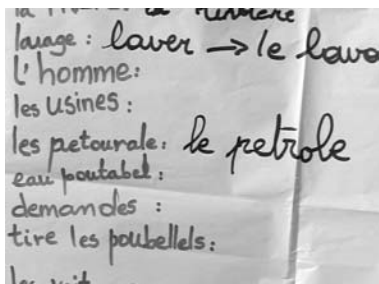 la rivière
lavage : laver → le lava
L'homme :
les usines :
les petourale : le petrole
eau poutabel :
demandes :
tire les poubellels :